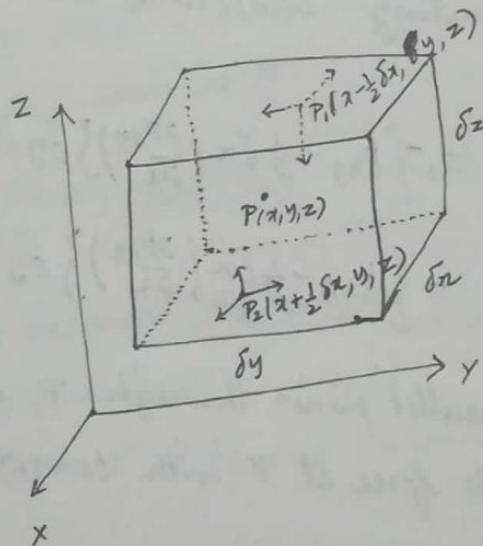 Z
P₁(x-½δx, y, z)
δz
P(x,y,z)
P₂(x+½δx, y, z)
δx
δy
Y
X